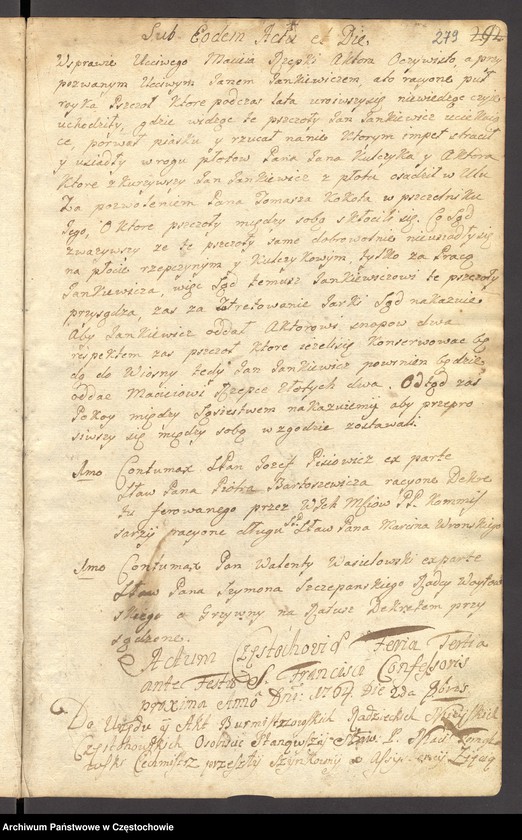 Sub Eodem Actu et Die. 279 191
W sprawie Uczciwego Macieia Rzepki Aktora Oczywisto, a przy
pozwanym Uczciwym Janem Jankiewiczem, a to racyone puł
royka Pszczoł Ktore podczas lata uroiwszy się niewiedzące czyie
uchodziły, gdzie widząc te pszczoły Jan Jankiewicz uciekaią
ce, porwał piasku y rzucał na nie Ktorym impet stracił
y usiadły w rogu płotow Pana Jana Kulczyka y Aktora
Ktore skurzywszy Jan Jankiewicz z płotu osadził w Ulu
Za pozwoleniem Pana Tomasza Kokota w pszczelniku
Jego, o Ktore pszczoły między sobą skłocili się. Co Sąd
zwazywszy ze te pszczoły same dobrowolnie nieusiadły się
na płocie rzepczynym y Kulczykowym, tylko za Pracą
Jankiewicza, więc Sąd temuz Jankiewiczowi te pszczoły
przysądza, zas za Stretowanie Jarki Sąd nakazuie
Aby Jankiewicz oddał Aktorowi snopow dwa
respektem zas pszczoł Ktore iezeli się Konserwować bę
dą do Wiosny tedy Jan Jankiewicz powinien będzie
oddac Maciciowi Rzepce złotych dwa. Odtąd zas
Pokoy między Sąsiestwem nakazuiemy aby przepro
siwszy się między sobą w zgodzie zostawali.
Amo Contumax JPan Jozef Pisiowicz ex parte
Sław Pana Piotra Bartoszewicza racyone Dekre
tu ferowanego przez WJch Mściow PP. Kommis
sarzy racyone długu Sławo Pana Marcina Wronskiego
Amo Contumax Pan Walenty Wasielowski ex parte
Sław Pana Szymona Szczepanskiego Radcy Woytow
skiego o Grzywny na Ratusz Dekretem przy
sądzone.
Actum Częstochoviae Feria Tertia
ante Festum S. Francisci Confessoris
proxima Anno Dni: 1764. Die 2da 8bris
Do Urzędu y Akt Burmistrzowskich Radzieckich Mieyskich
Częstochowskich Osobiscie Stanąwszy Sław. P.
Cechmistrz przeszły Szynkowny
Archiwum Państwowe w Częstochowie